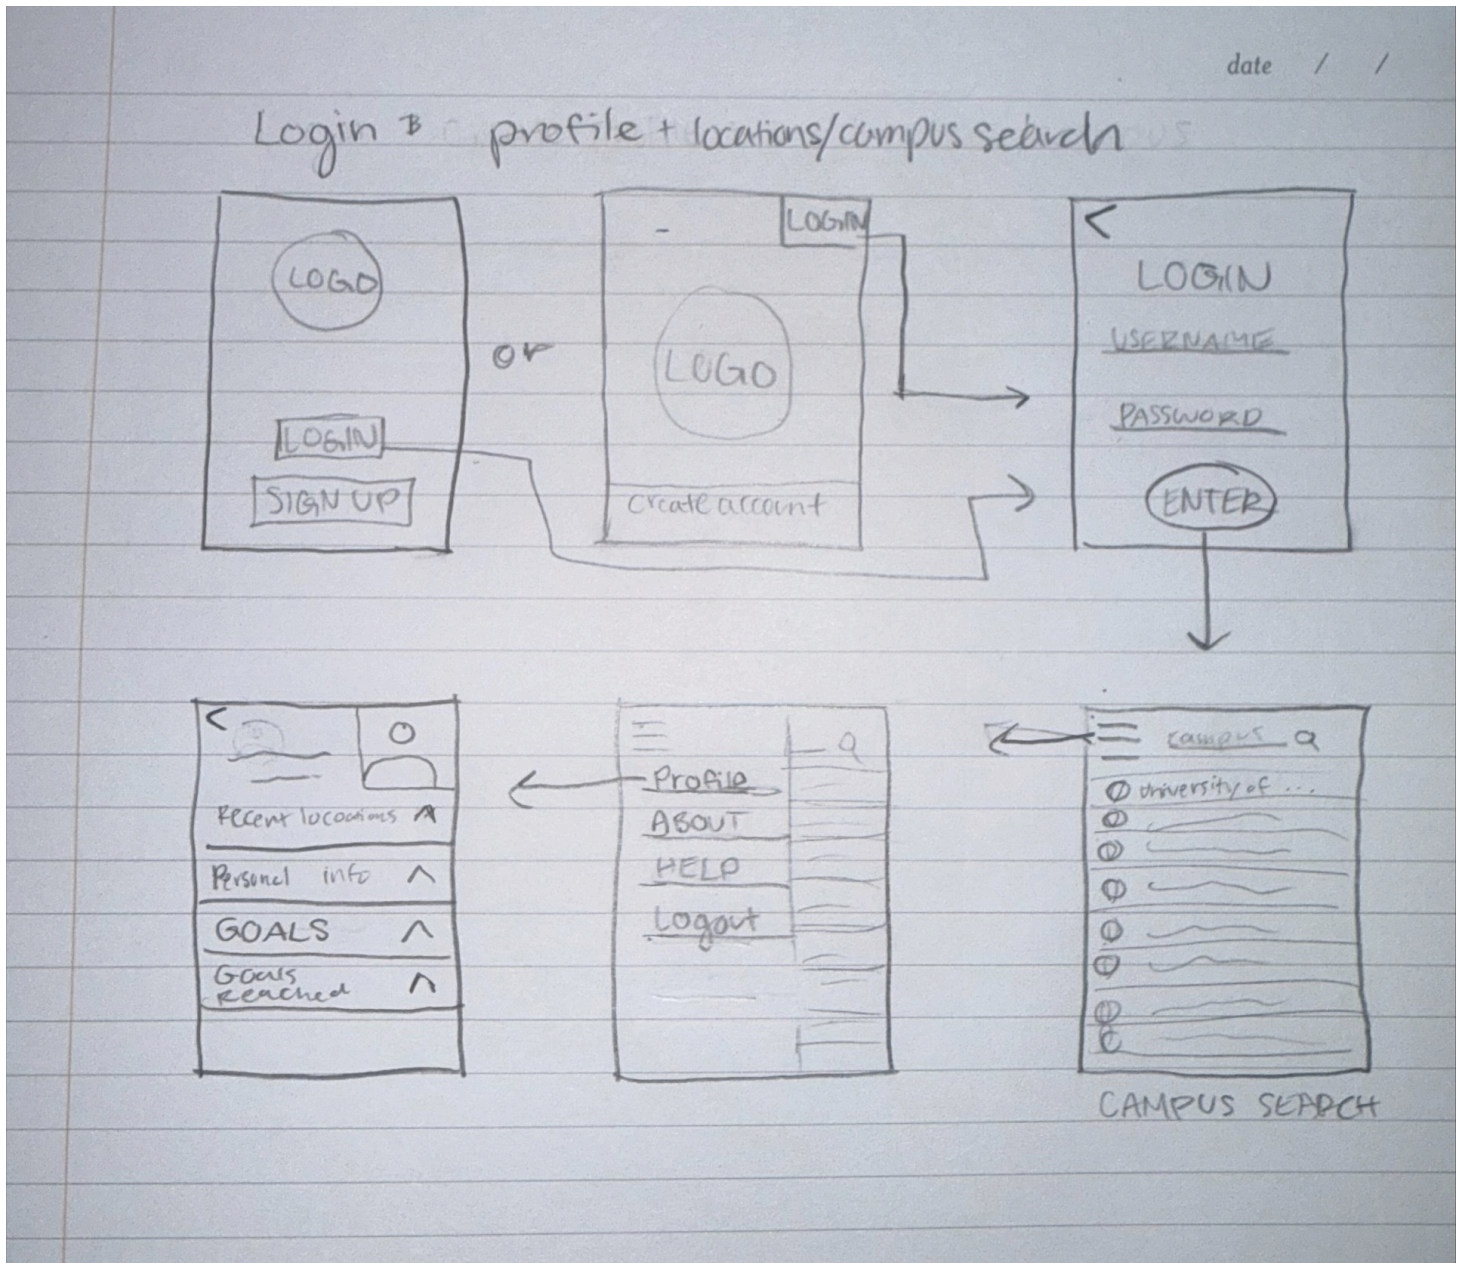 date / /
Login B profile + locations/campus search
LOGO
LOGIN
SIGN UP
or
LOGIN
LOGO
create account
<
LOGIN
USERNAME
PASSWORD
ENTER
<
Recent locoations
Personal info
GOALS
Goals
Reached
Profile
ABOUT
HELP
Logout
campus
University of ...
CAMPUS SEARCH